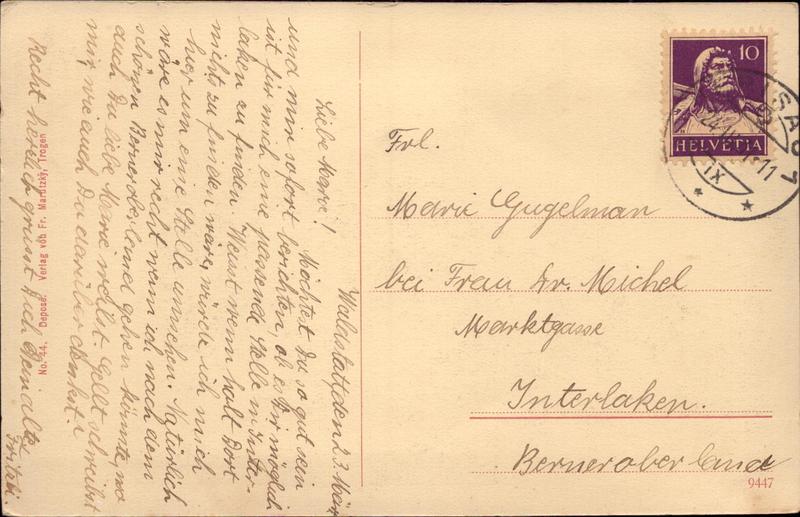 Waldstatt, den 23. März
Liebe Marie! Möchtest du so gut sein
und mir sofort berichten, ob es dir möglich
ist für mich eine passende Stelle in Inter-
laken zu finden. Weisst wenn halt dort
nichts zu finden wär, würde ich mich
hier um eine Stelle umsehen. Natürlich
wäre es mir recht wenn ich nach dem
schönen Berneroberland gehen könnte, wo
auch du liebe Marie weilst. Gellt schreibst
mir, wie auch Du darüber denkst.
Recht herzlich grüsst Dich Dein alter
Fritzli.
No. 44. Deposé. Verlag von Fr. Marutzky, Trogen
10
HELVETIA
Frl.
Marie Gugelman
bei Frau Dr. Michel
Marktgasse
Interlaken.
Berneroberland
9447